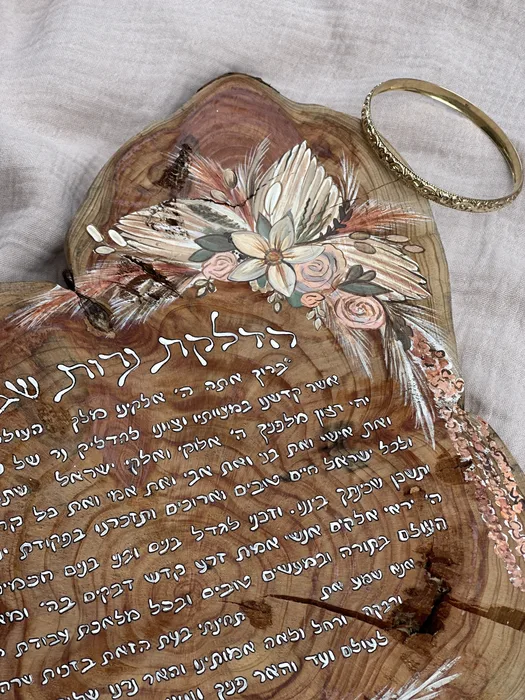 הדלקת נרות
"ברוך אתה ה' אלקנו מלך העולם
אשר קדשנו במצוותיו וציונו להדליק נר של
יהי רצון מלפניך ה' אלוקי ואלקי ישראל
ואת אישי ואת בני ואת אבי ואת אמי ואת כל
ולכל ישראל חיים טובים וארוכים ותזכרנו בפקודת
ותשכן שכינתך בינינו. וזכנו לגדל בנים ובני בנים חכמים
ה' יראי אלקים אנשי אמית זרע קדש דבקים בה'
העולם בתורה ובמעשים טובים ובכל מלאכת עבודת
אנא שמע את תחינתי בעת הזאת בזכות שרה
ורבקה ורחל ולאה אמותינו והאר נרנו
לעולם ועד והאר פניך